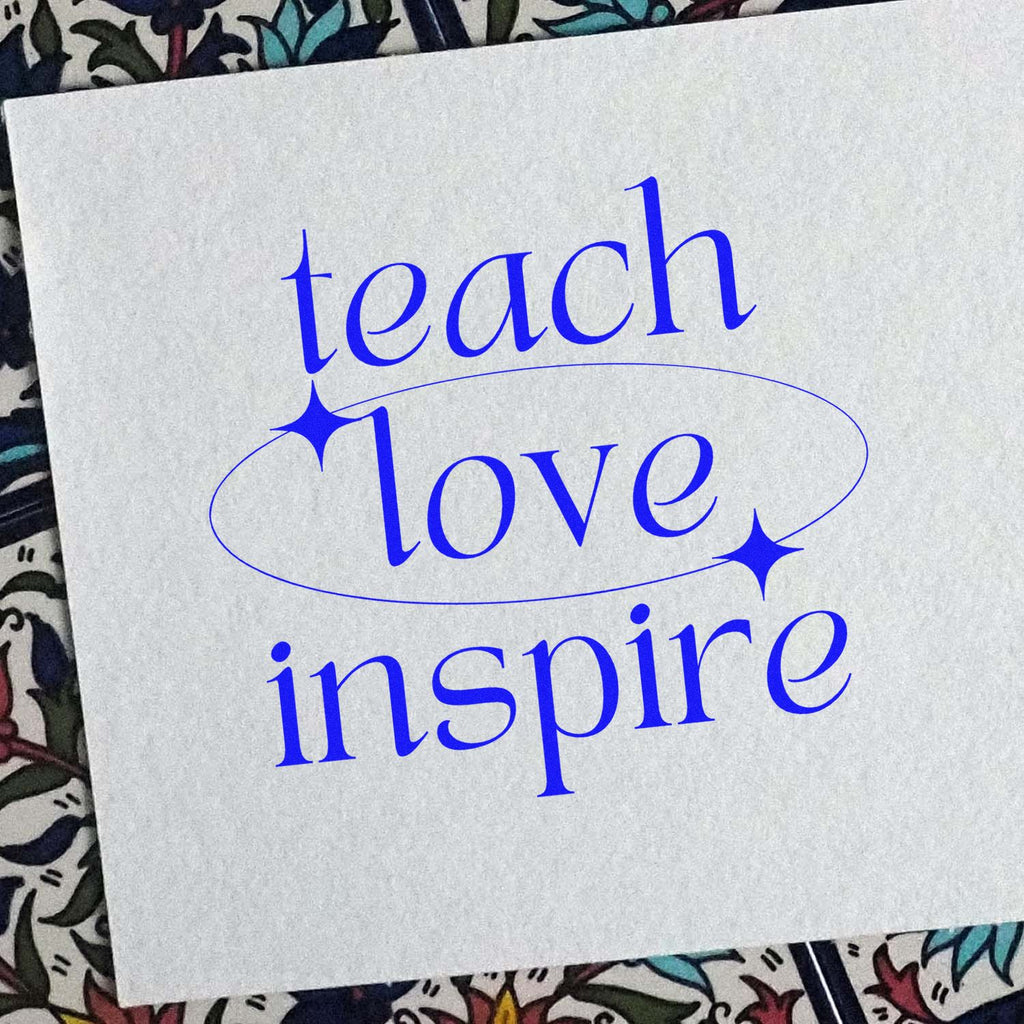 teach
love
inspire